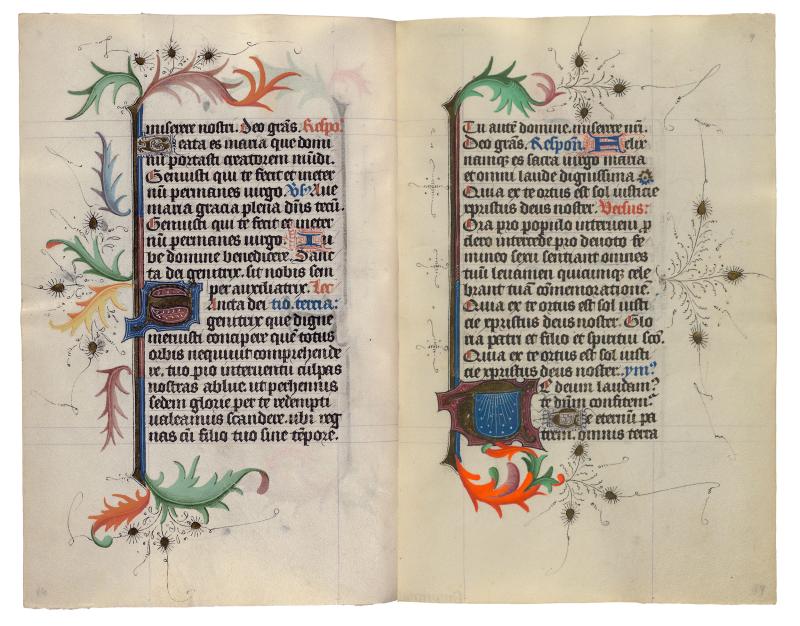 miserere nostri. Deo grās. Respo.
Beata es maria que domi
nū portasti creatorem mūdi.
Genuisti qui te fecit et ineter
nū permanes virgo. Vs. Aue
maria gracia plena dn̄s tecū.
Genuisti qui te fecit et ineter
nū permanes virgo. Iu
be domine benedicere. Sanc
ta dei genitrix. sit nobis sem
per auxiliatrix. Lec
Sancta dei tio. tercia:
genitrix que digne
meruisti concipere quē totus
orbis nequiuit comprehende
re. tuo pio interuentu culpas
nostras ablue. ut perhennis
sedem glorie per te redempti
ualeamus scandere. ubi reg
nas cū filio tuo sine tēpore.
Tu autē domine. miserere nr̄i.
Deo grās. Respon. Felix
namqȝ es sacra uirgo maria
et omni laude dignissima
Quia ex te ortus est sol iusticie
xpristus deus noster. Versus:
Ora pro populo interueni p
clero intercede pro deuoto fe
mineo sexu sentiant omnes
tuū leuamen quicunqȝ cele
brant tuā cōmemorationē.
Quia ex te ortus est sol iusti
cie xpristus deus noster. Glo
ria patri et filio et spiritui scō.
Quia ex te ortus est sol iusti
cie xpristus deus noster. ym?
Te deum laudam?
te dn̄um confitem?
Te eternū pa
trem. omnis terra